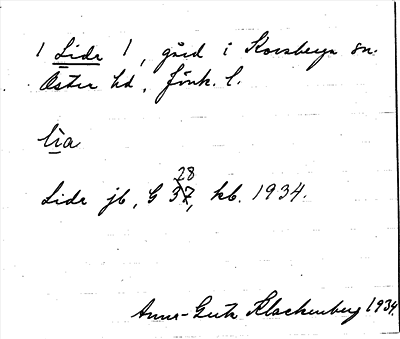 1 Lida 1, gård i Korsberga sn.
Öster hd, Jönk. l.
lìa
Lida jb, G 37, 28 kb. 1934.
Anna-Greta Klackenberg 1934.